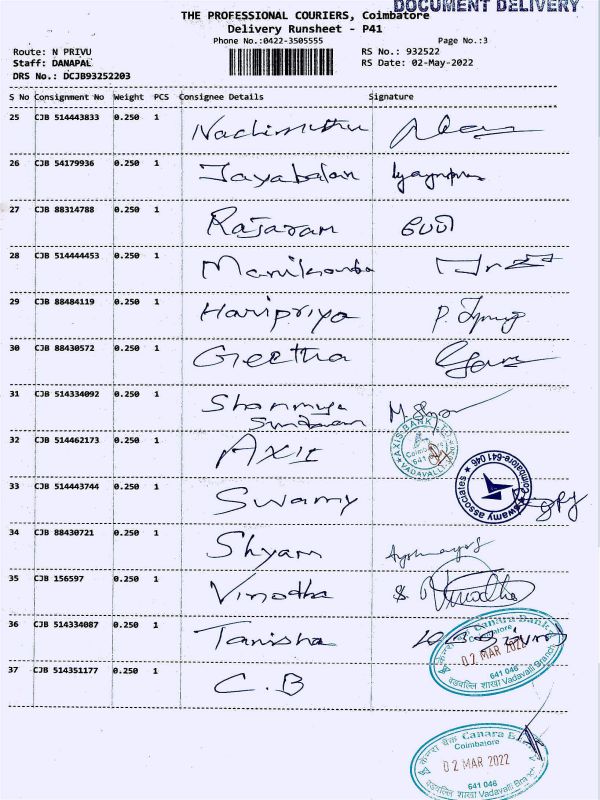 DOCUMENT DELIVERY
THE PROFESSIONAL COURIERS, Coimbatore
Delivery Runsheet - P41
Phone No.:0422-3505555 Page No.:3
Route: N PRIVU RS No.: 932522
Staff: DANAPAL RS Date: 02-May-2022
DRS No.: DCJB93252203
S No Consignment No Weight PCS Consignee Details Signature
25 CJB 514443833 0.250 1 Nachimuthu
26 CJB 54179936 0.250 1 Jayabalan
27 CJB 88314788 0.250 1 Rajaram
28 CJB 514444453 0.250 1
29 CJB 88484119 0.250 1 Haripriya
30 CJB 88430572 0.250 1 Geetha
31 CJB 514334092 0.250 1 Shanmuga
Sundaram
32 CJB 514462173 0.250 1 AXIS
AXIS BANK LTD
Coimbatore
641
VADAVALLI
33 CJB 514443744 0.250 1 Swamy
swamy associates ★ Coimbatore-641 046 ★
34 CJB 88430721 0.250 1 Shyam
35 CJB 156597 0.250 1 Vinodha Vinodha
36 CJB 514334087 0.250 1 Tanisha
केनरा बैंक Canara Bank
Coimbatore
02 MAR 2022
641 046
वडवल्लि शाखा Vadavalli Branch
37 CJB 514351177 0.250 1 C.B
केनरा बैंक Canara Bank
Coimbatore
02 MAR 2022
641 046
वडवल्लि शाखा Vadavalli